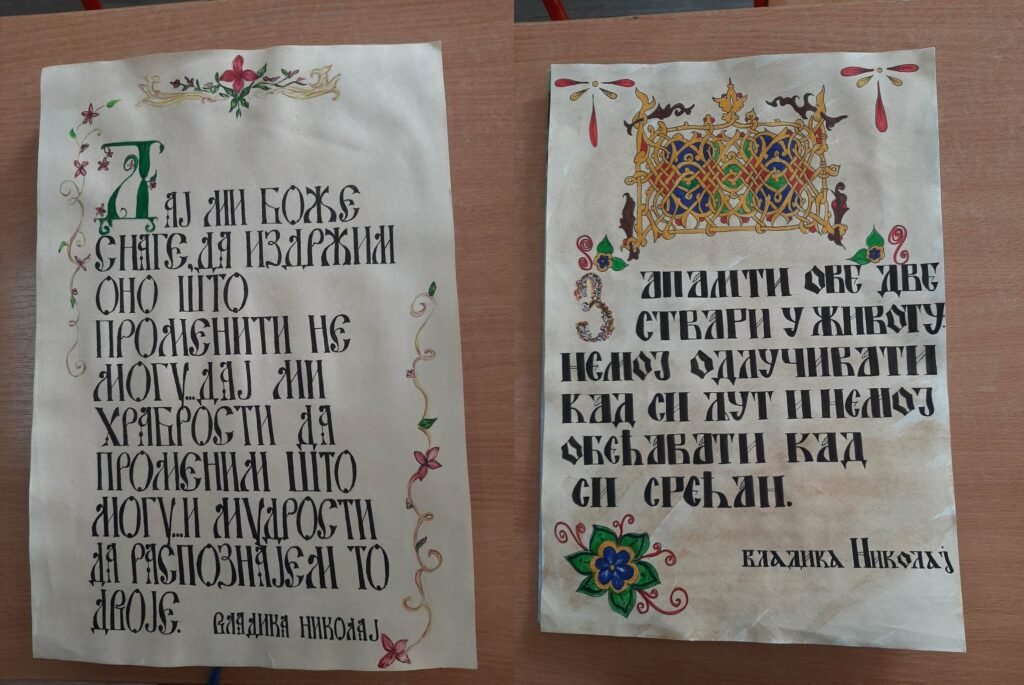 ДАЈ МИ БОЖЕ
СНАГЕ, ДА ИЗДРЖИМ
ОНО ШТО
ПРОМЕНИТИ НЕ
МОГУ...ДАЈ МИ
ХРАБРОСТИ ДА
ПРОМЕНИМ ШТО
МОГУ...И МУДРОСТИ
ДА РАСПОЗНАЈЕМ ТО
ДВОЈЕ.
ВЛАДИКА НИКОЛАЈ
ЗАПАМТИ ОВЕ ДВЕ
СТВАРИ У ЖИВОТУ:
НЕМОЈ ОДЛУЧИВАТИ
КАД СИ ЉУТ И НЕМОЈ
ОБЕЋАВАТИ КАД
СИ СРЕЋАН.
ВЛАДИКА НИКОЛАЈ